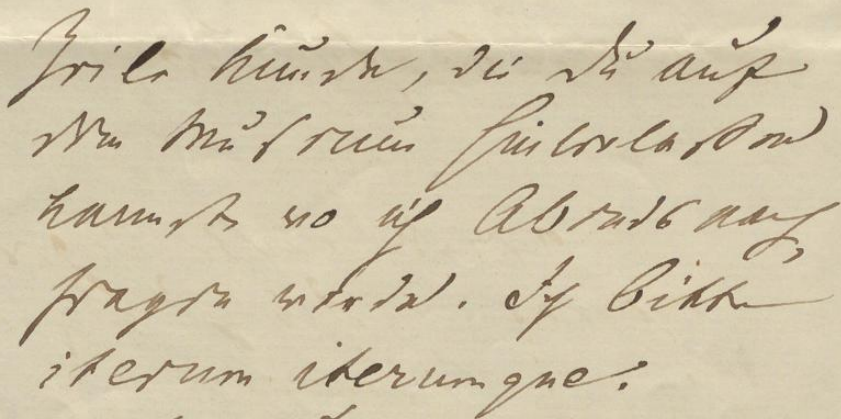 Zeile Kunde, die Du auf
dem Museum hinterlassen
kannst wo ich Abends nach
fragen werde. Ich bitte
iterum iterumque.